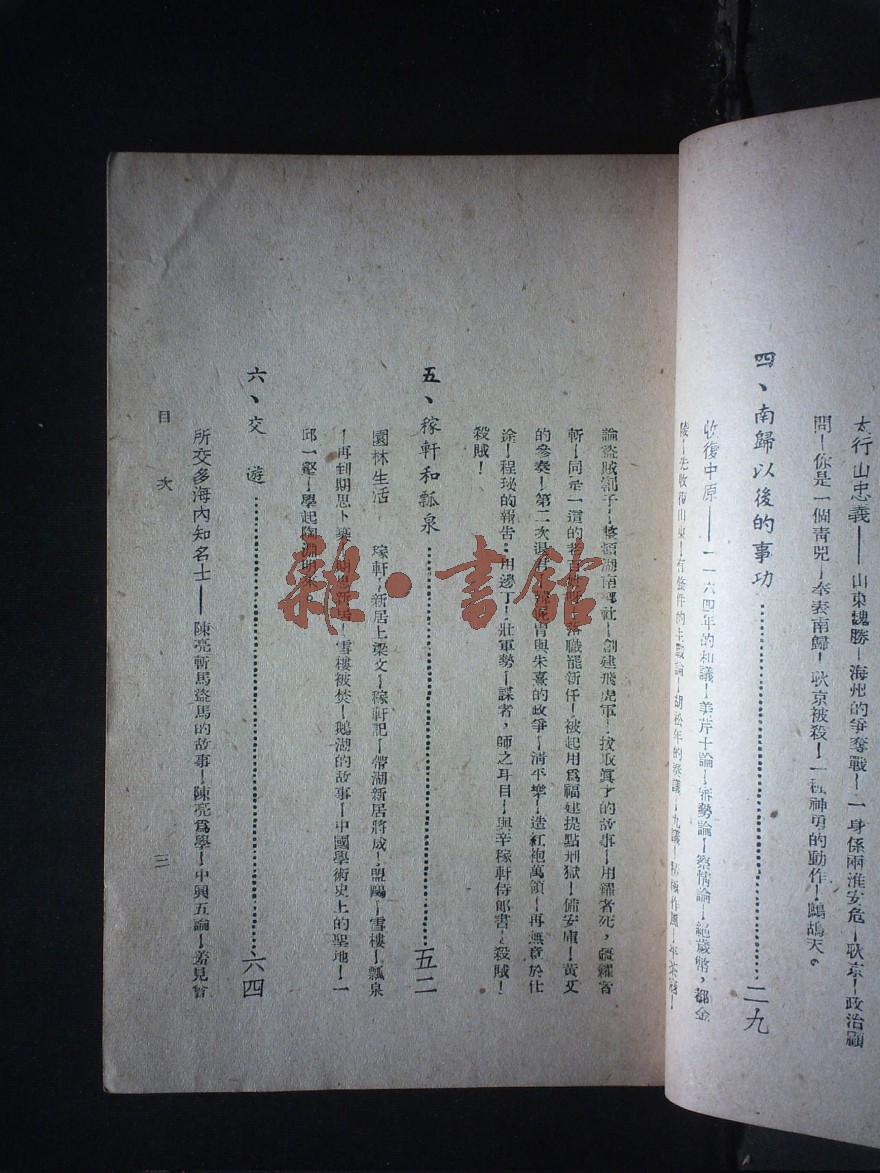 太行山忠義——山東魏勝—海州的爭奪戰—一身係兩淮安危—耿京—政治顧
問—你是一個青兕—奉表南歸—耿京被殺—一種神勇的動作—鷓鴣天。
四、南歸以後的事功……二九
收復中原——一一六四年的和議—美芹十論—審勢論—察情論—絕歲幣，都金
陵—先收復山東—有條件的主戰論—胡松年的奏議—九議—積極作風—平茶寇—
論盜賊劄子—整頓湖南鄉社—創建飛虎軍—
的故事—用糴者死，
斬—同是一道的老百姓
落職罷新任—被起用爲福建提點刑獄—備安庫—黃艾
的參奏—第二次退
與朱熹的政爭—清平樂—造紅袍萬領—再無意於仕
途—程珌的報告：用邊丁—壯軍勢—諜者，師之耳目—與辛稼軒侍郎書—殺賊！
殺賊！
五、稼軒和瓢泉……五二
園林生活　稼軒—新居上梁文—稼軒記—帶湖新居將成—盟鷗—雪樓—瓢泉
—再到期思卜築—期思新居—雪樓被焚—鵝湖的故事—中國學術史上的聖地—一
邱一壑—學起陶淵明來。
六、交遊……六四
所交多海內知名士——陳亮斬馬盜馬的故事—陳亮爲學—中興五論—羞見曾
目次
三
雜·書館